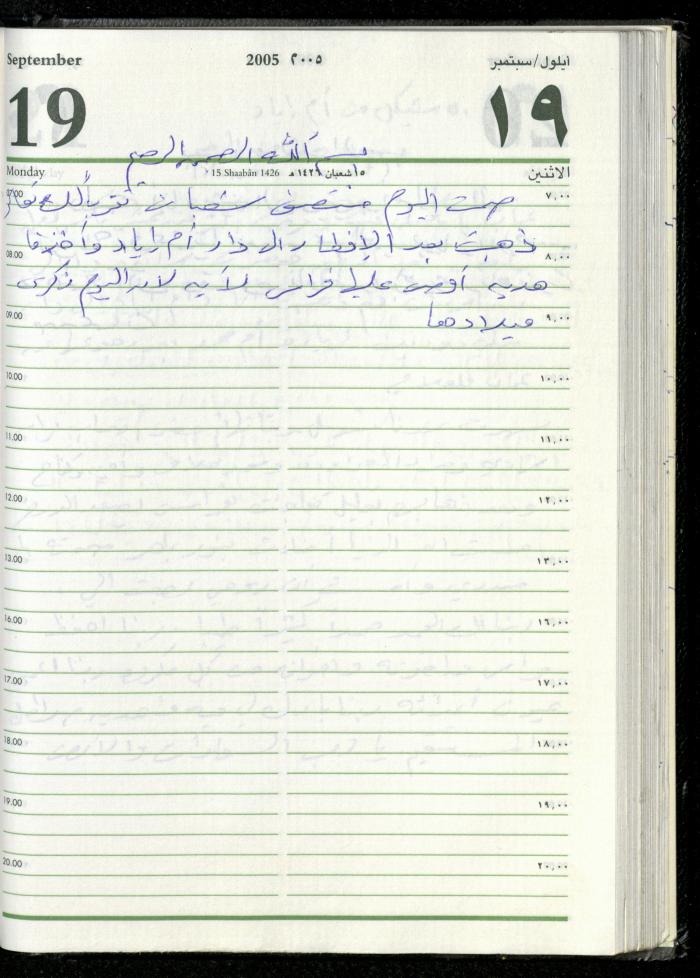 September 2005 ٢٠٠٥ ايلول/سبتمبر
19 ١٩
بسم الله الرحمن الرحيم
Monday 15 Shaabân 1426 ١٥ شعبان ١٤٢٦ هـ الاثنين
07.00 ٧,٠٠
صمت اليوم منتصف شعبان
ذهبت بعد الإفطار الى دار أم اياد وأخذنا
08.00 ٨,٠٠
هديه فراس لآيه لان اليوم ذكرى
09.00 ٩,٠٠
ميلادها
10.00 ١٠,٠٠
11.00 ١١,٠٠
12.00 ١٢,٠٠
13.00 ١٣,٠٠
16.00 ١٦,٠٠
17.00 ١٧,٠٠
18.00 ١٨,٠٠
19.00 ١٩,٠٠
20.00 ٢٠,٠٠